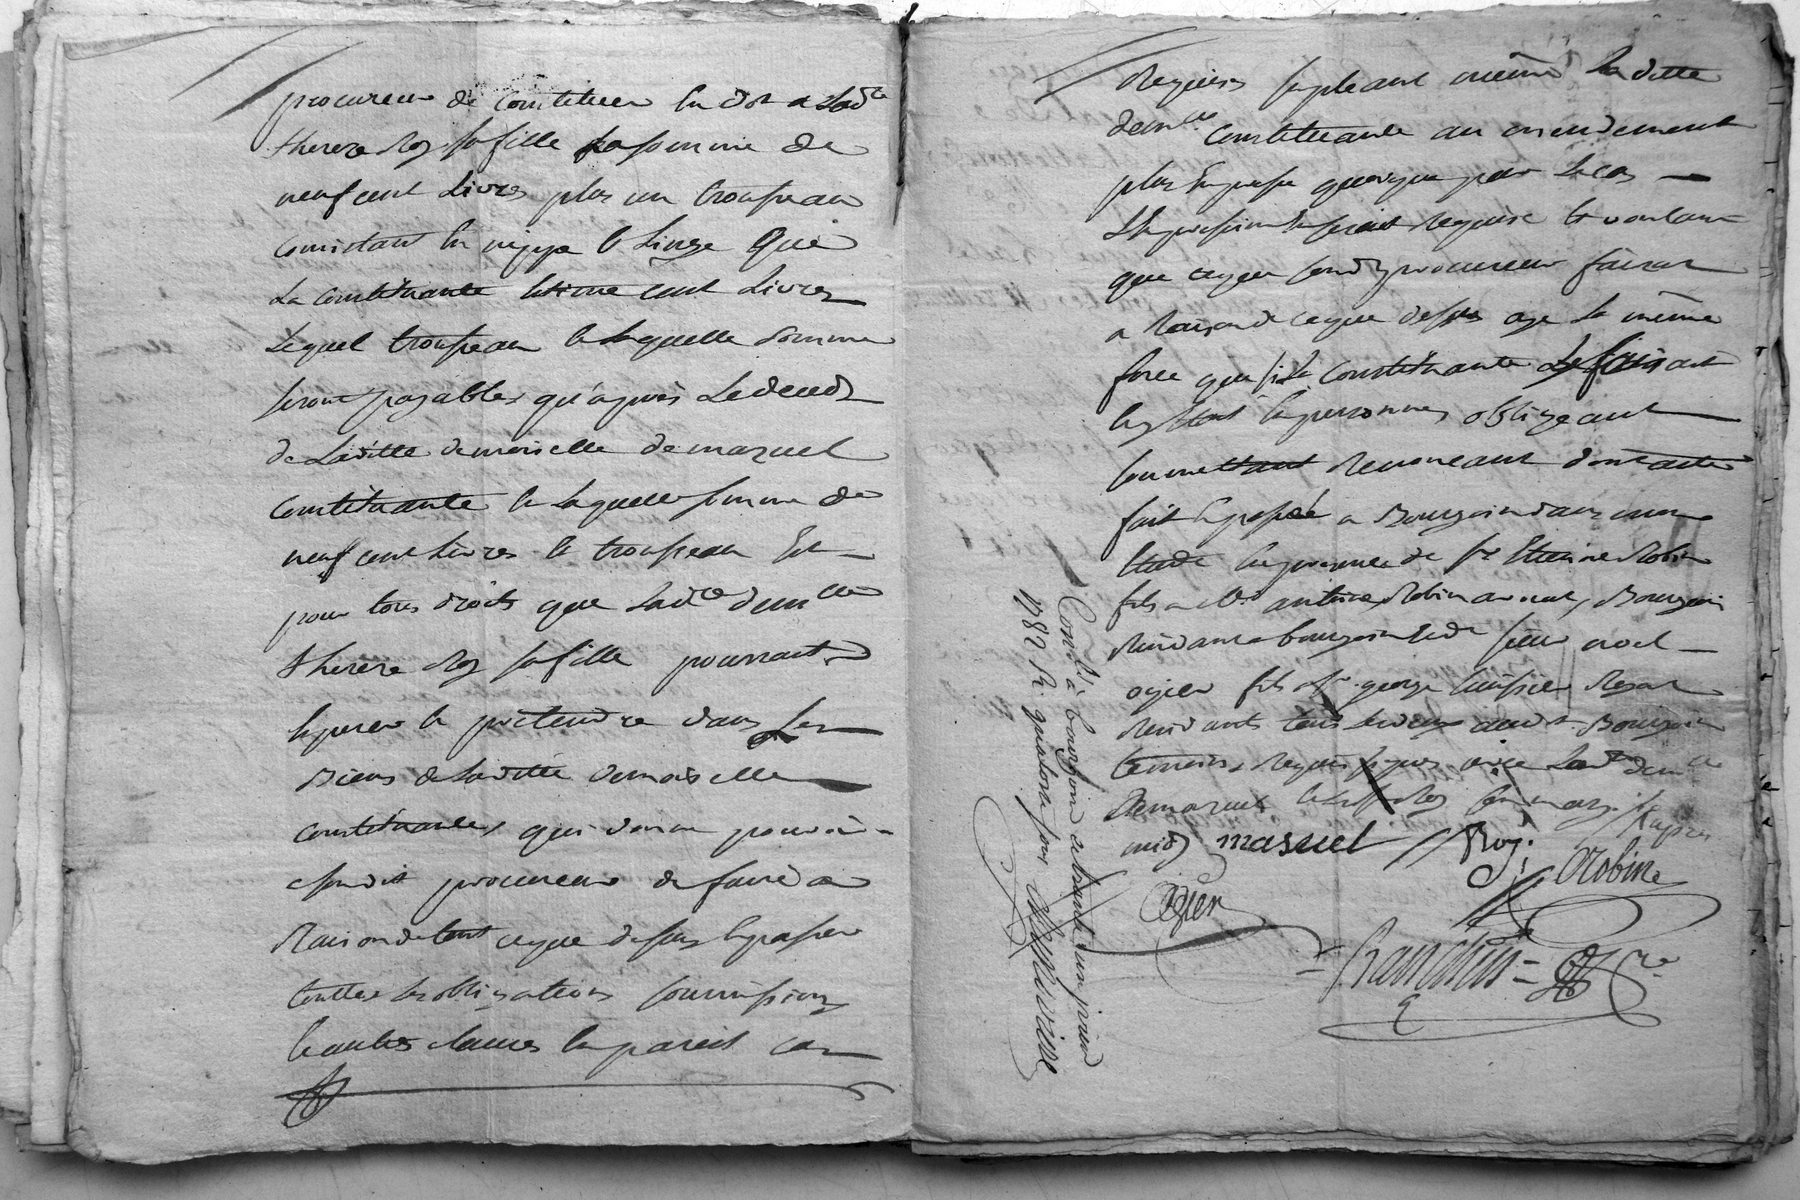 procureur de constituer en dot a Ladte
therese Rey sa fille la somme de
neuf cent Livres plus un trousseau
consistant en nippe et Linge que
La constituante estime cent Livres
Lequel trousseau et Laquelle somme
seront payables qu'après Le deced
de Laditte demoiselle demazuel
constituante et Laquelle somme de
neuf cent Livres et trousseau Est
pour tous droits que Ladte demlle
therese Rey sa fille pourrait
esperer et pretendre dans Les
Biens de Laditte demoiselle
constituante, qui donne pouvoir
a son dit procureur de faire a
Raison de tout ce que dessus et passer
touttes les obligations soumissions
et autres clauses en pareil cas
Requises supleant même La ditte
demlle constituante au mendement
plus Expres quoique par Le cas
L'Expression En serait Requise et voulant
que ce que sondt procureur faira
a Raison de ce que dessus aye La même
force que si La constituante Le faisait
en personne, obligeant
soumettant Renonceant dont acte
fait et passé a Bourgoin dans mon
Etude en presence de sr Etienne Robin
fils a Me antoine Robin avocat, Bourgeois
Residant a bourgoin Et de sieur noel
ogier fils sr george huissier Royal
Residants tous les deux audit Bourgoin
temoins Requis signes avec Ladte demlle
demazuel et Led sr Rey ce mars apres
midy masuel // Rey. Robin
Ogier
= Ranchin = Nre
Conlé à bourgoin
1782 Le quatorze